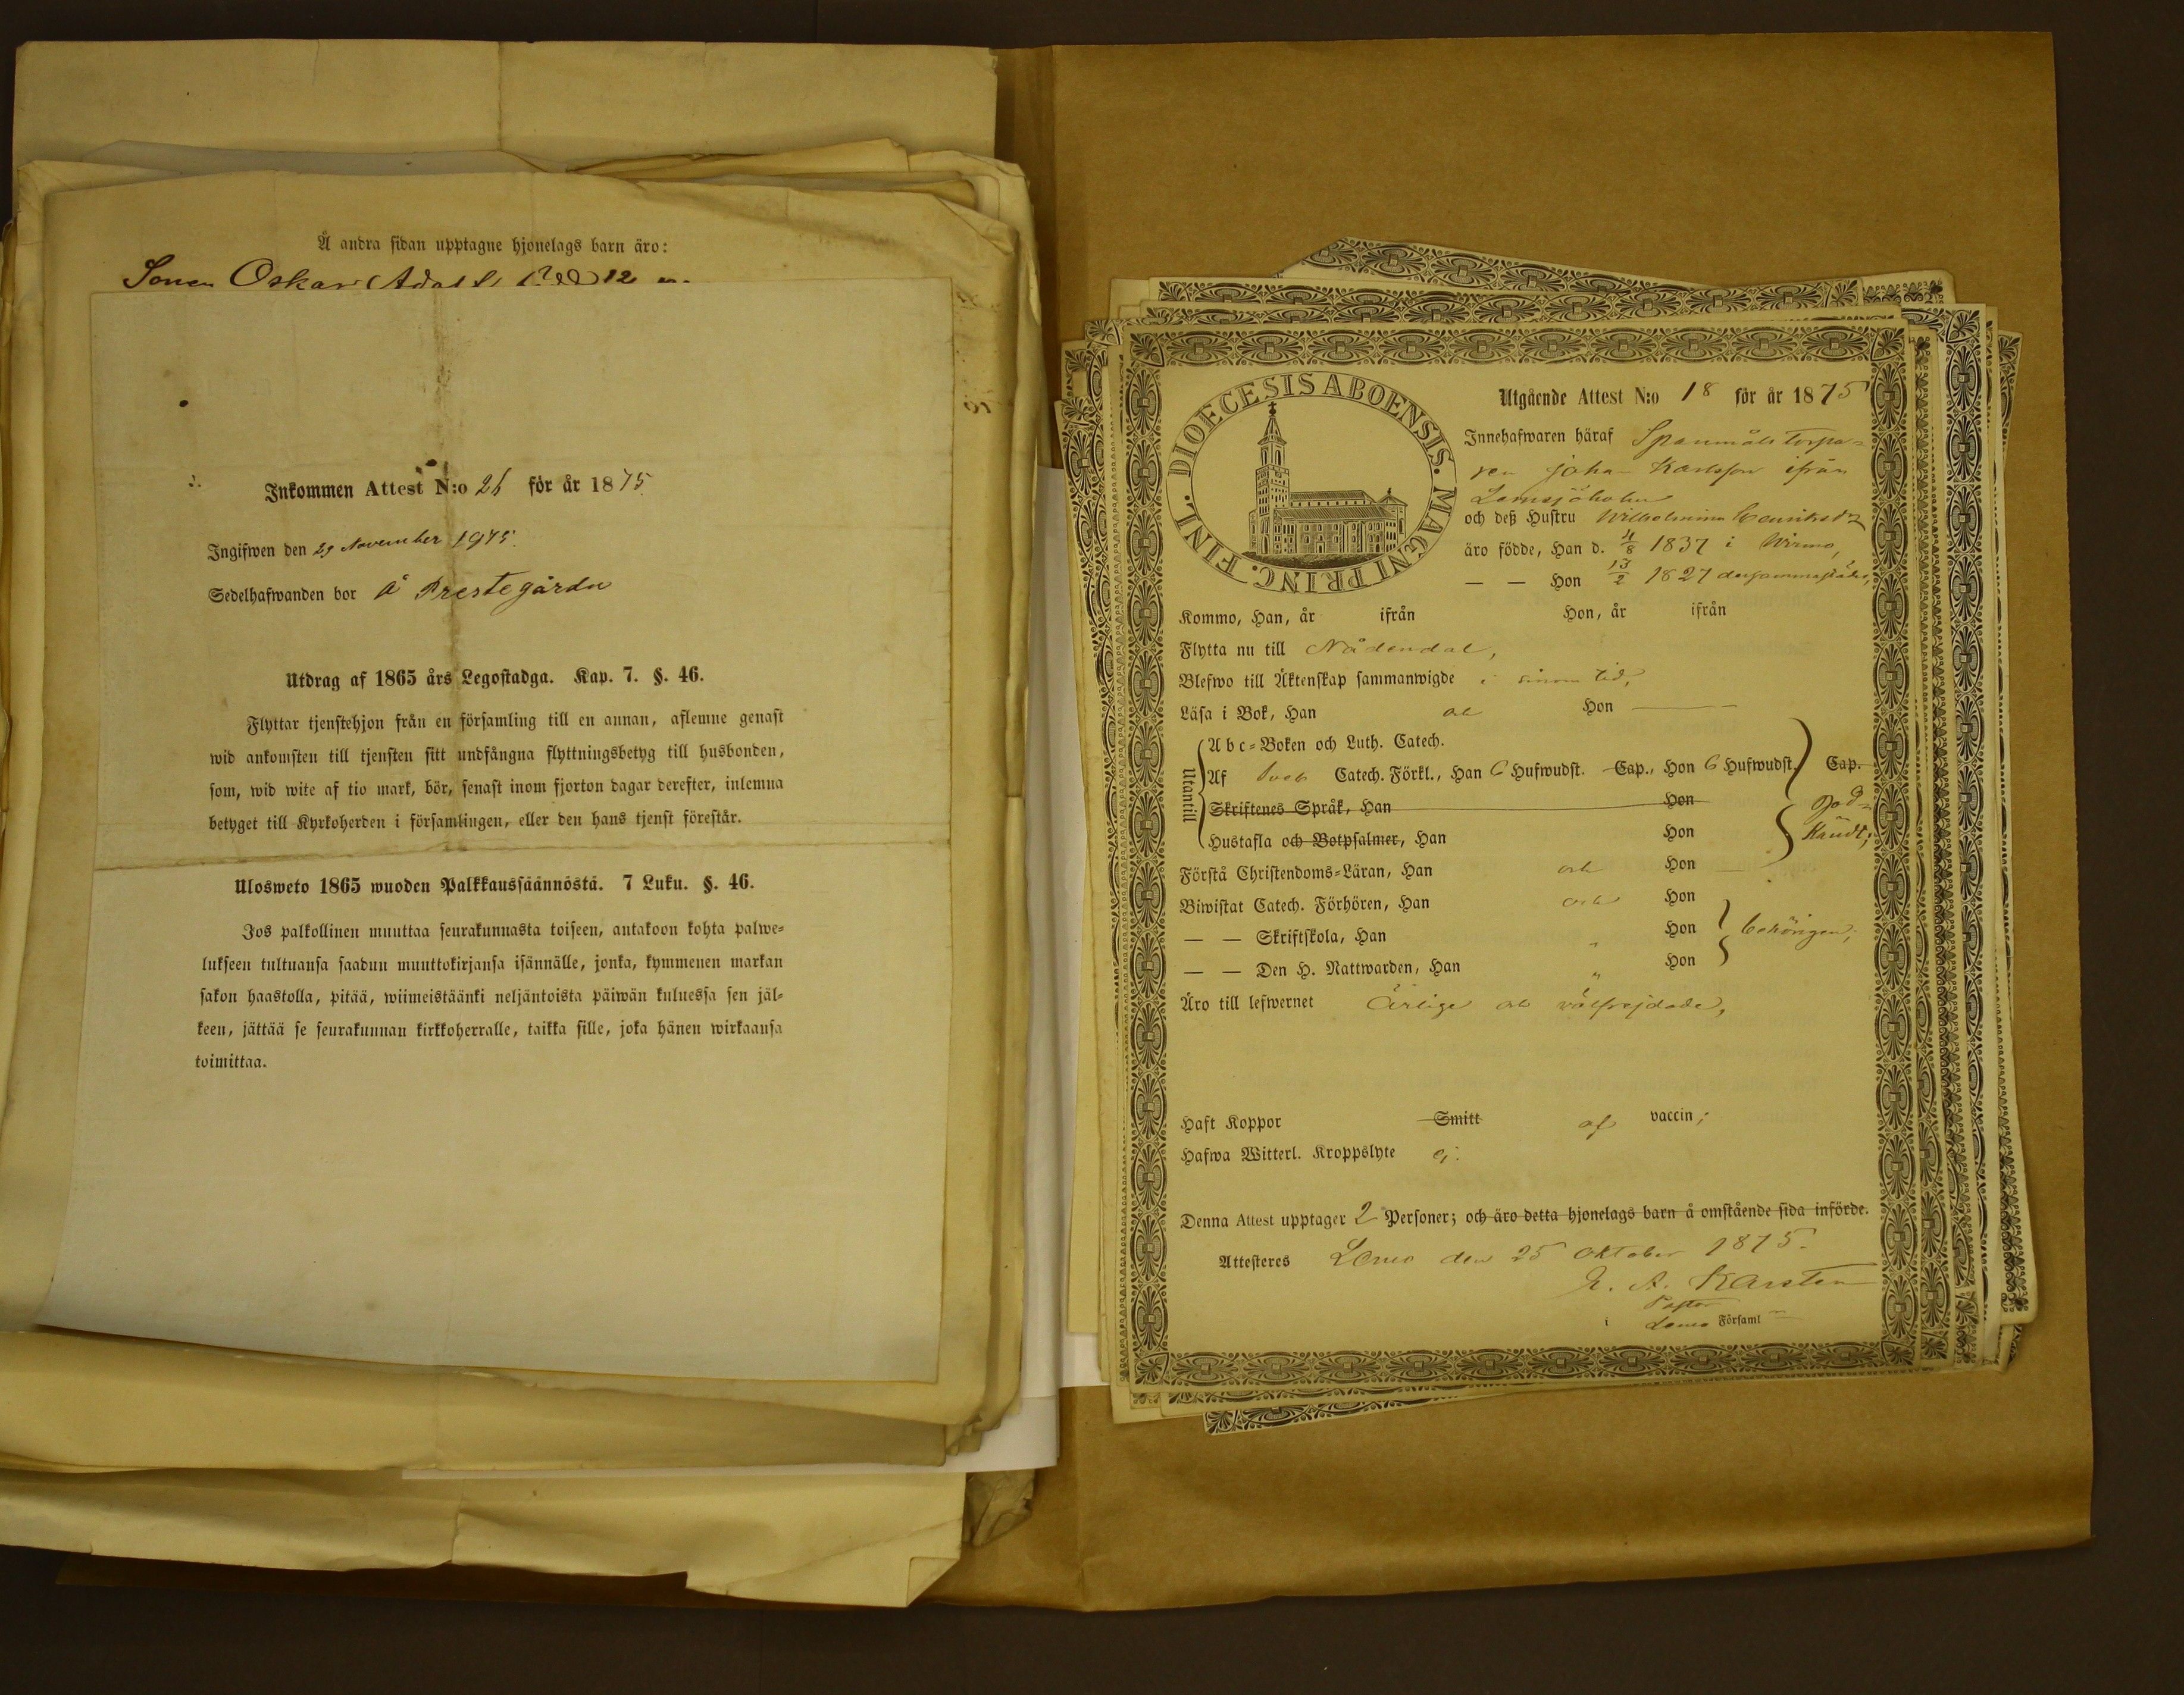 Å andra sidan upptagne hjonelags barn äro:
Sonen Oskar
Inkommen Attest N:o 26 för år 1875.
Ingifwen den 29 November 1975.
Sedelhafwanden bor å Prestegårdn
Utdrag af 1865 års Legostadga. Kap. 7. §. 46.
Flyttar tjenstehjon från en församling till en annan, aflemne genast
wid ankomsten till tjensten sitt undfångna flyttningsbetyg till husbonden,
som, wid wite af tio mark, bör, senast inom fjorton dagar derefter, inlemna
betyget till Kyrkoherden i församlingen, eller den hans tjenst förestår.
Ulosweto 1865 wuoden Palkkaussäännöstä. 7 Luku. §. 46.
Jos palkollinen muuttaa seurakunnasta toiseen, antakoon kohta palwe=
lukseen tultuansa saadun muuttokirjansa isännälle, jonka, kymmenen markan
sakon haastolla, pitää, wiimeistäänki neljäntoista päiwän kuluessa sen jäl=
keen, jättää se seurakunnan kirkkoherralle, taikka sille, joka hänen wirkaansa
toimittaa.
DIOECESIS ABOENSIS. MAGNI PRINC. FINL.
Utgående Attest N:o 18 för år 1875
Innehafwaren häraf Spanmåls Torpa=
ren Johan Karlsson ifrån
Lemsjöholm
och deß Hustru Wilhelmina Henriksdr
äro födde, Han d. 4/8 1837 i Wirmo,
— — Hon 13/2 1827 dersammastädes,
Kommo, Han, år ifrån Hon, år ifrån
Flytta nu till Nådendal,
Blefwo till Äktenskap sammanwigde i sinom tid,
Läsa i Bok, Han och Hon —
Utantill
Abc=Boken och Luth. Catech.
Af Sveb Catech. Förkl., Han 6 Hufwudst. Cap., Hon 6 Hufwudst. Cap.
Skriftenes Språk, Han Hon
Hustafla och Botpsalmer, Han Hon
God=
kändt;
Förstå Christendoms=Läran, Han och Hon —
Biwistat Catech. Förhören, Han och Hon
— — Skriftskola, Han " Hon
behörigen;
— — Den H. Nattwarden, Han " Hon
Äro till lefwernet Ärlige och wälfrejdade,
Haft Koppor Smitt af vaccin;
Hafwa Witterl. Kroppslyte ej.
Denna Attest upptager 2 Personer; och äro detta hjonelags barn å omstående sida införde.
Attesteres Lemo den 25 Oktober 1875.
A. Karsten
Pastor
i Lemo Församl